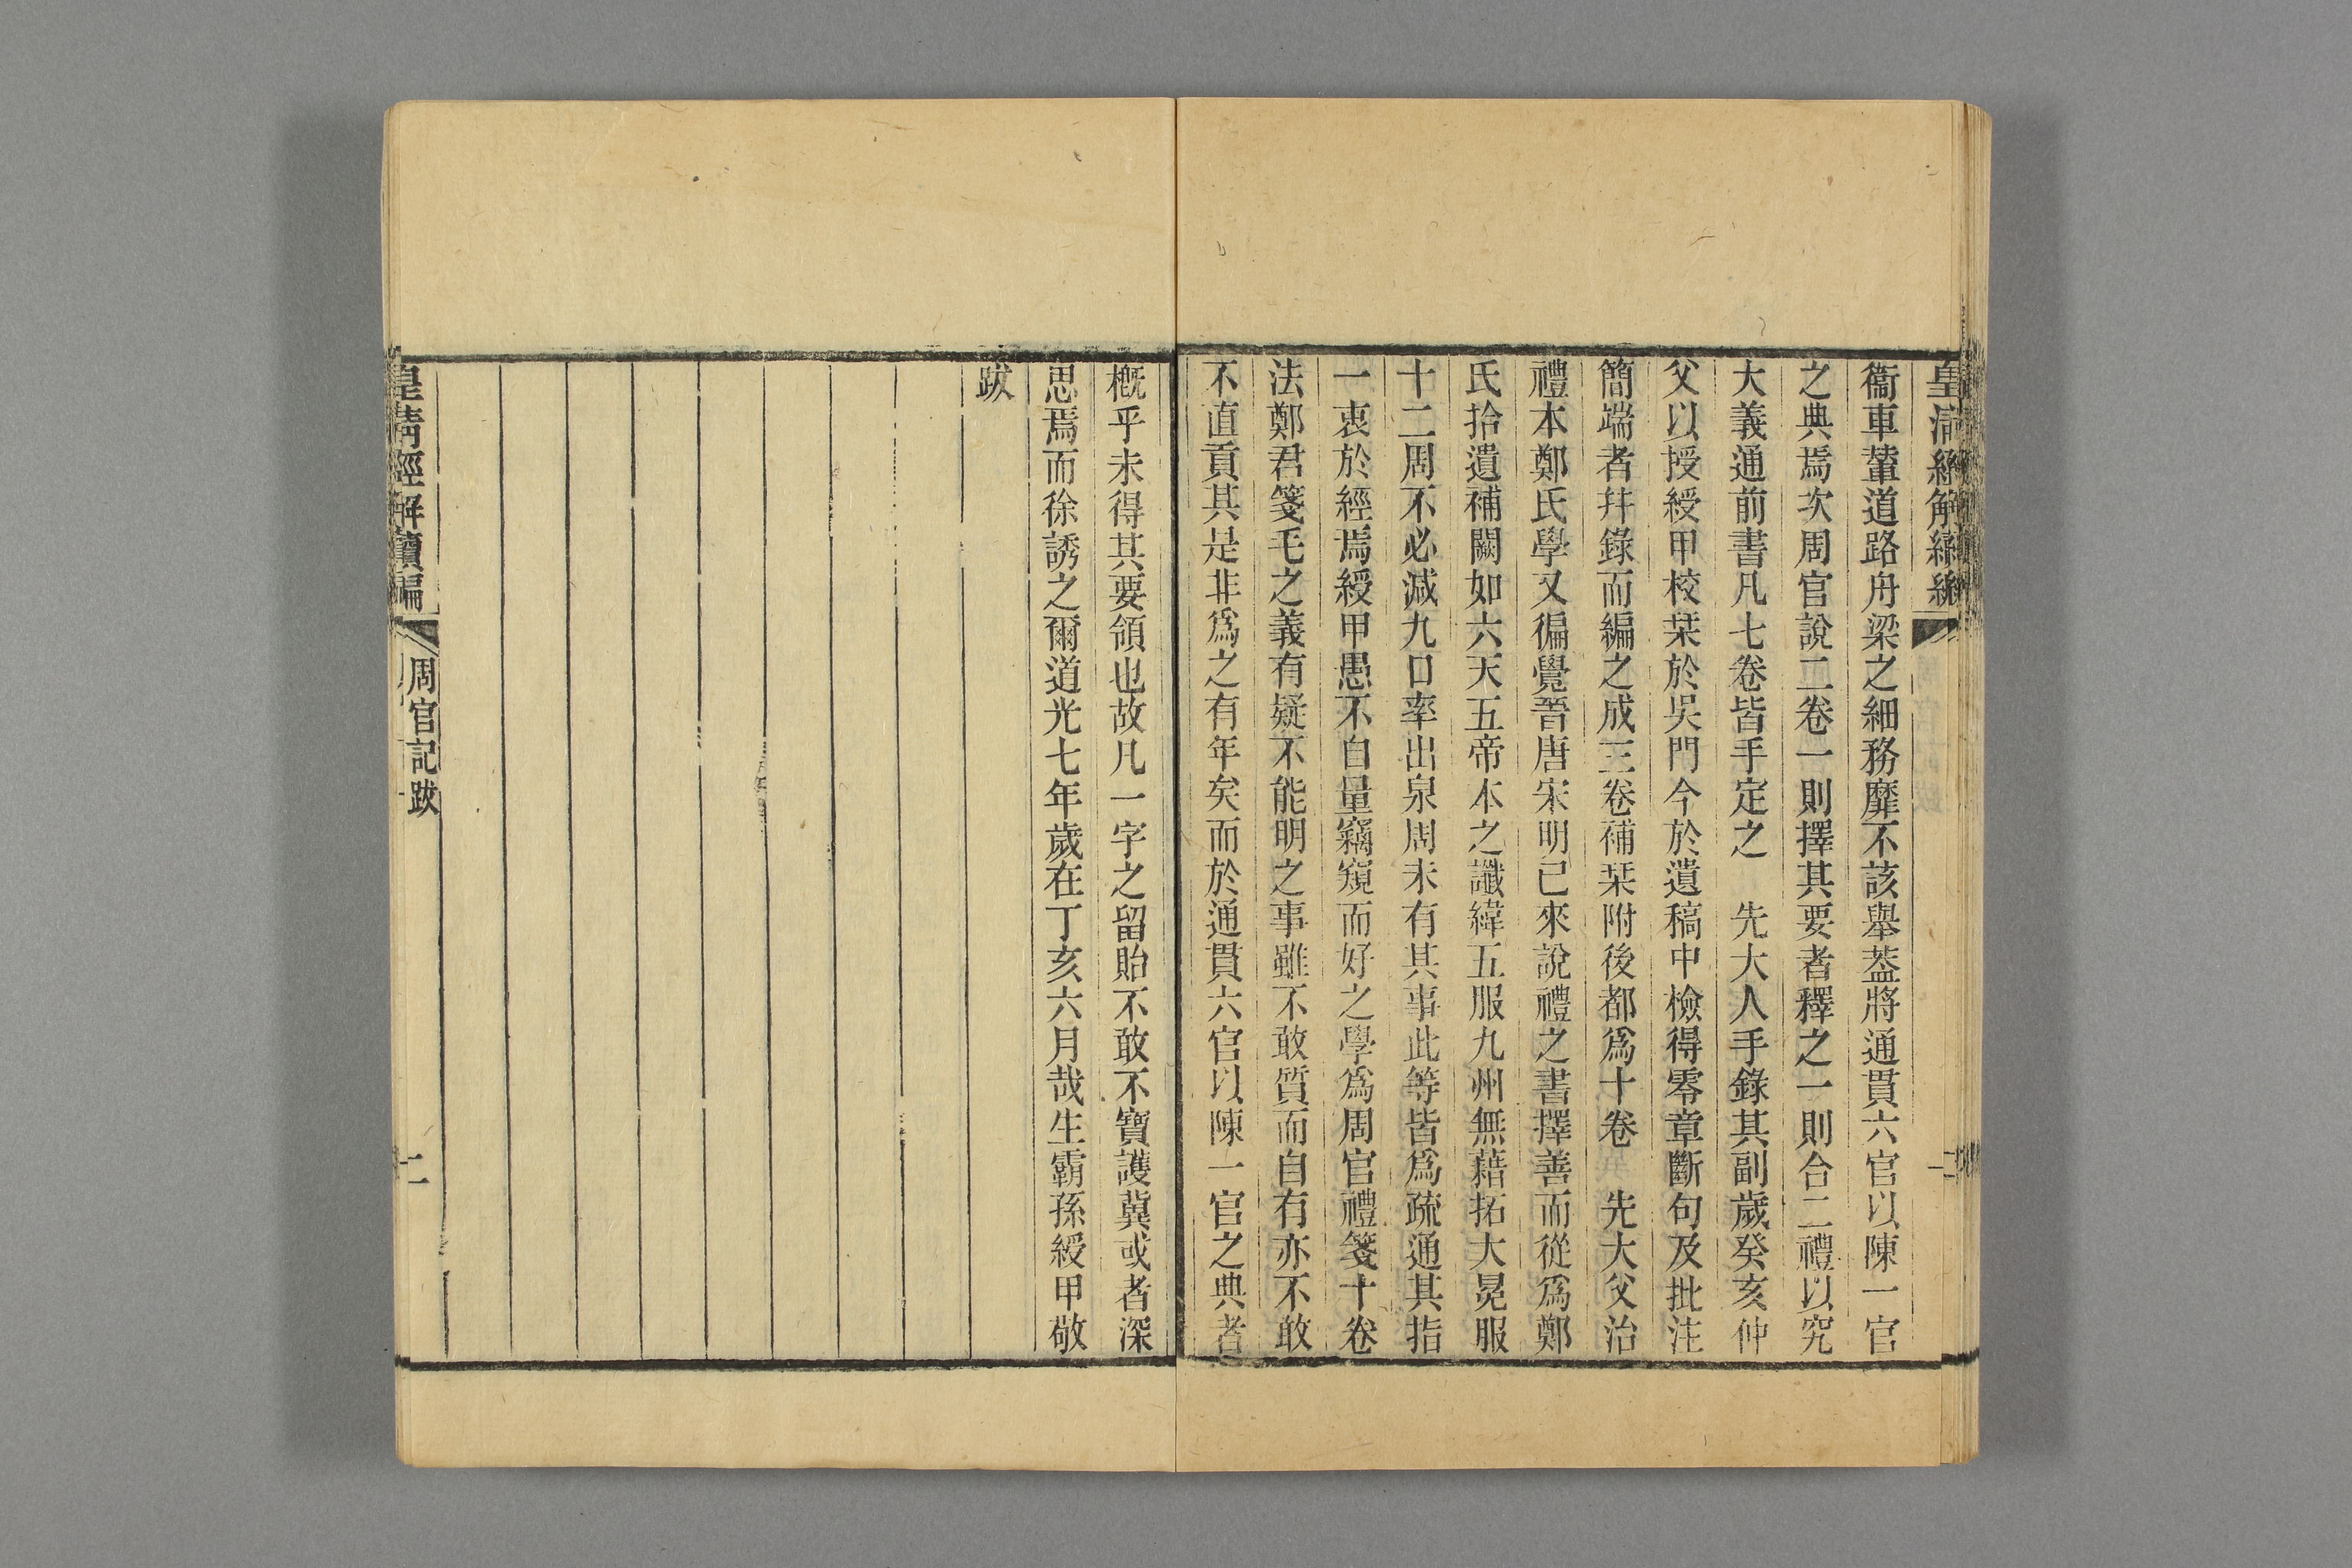 衞車輦道路舟梁之細務靡不該舉葢將通貫六官以陳一官
之典焉次周官說二卷一則擇其要者釋之一則合二禮以究
大義通前書凡七卷皆手定之　先大人手錄其副歲癸亥仲
父以授綬甲校栞於吳門今於遺稿中檢得零章斷句及批注
簡端者幷錄而編之成三卷補栞附後都爲十卷　先大父治
禮本鄭氏學又徧覺晉唐宋明已來說禮之書擇善而從爲鄭
氏拾遺補闕如六天五帝本之讖緯五服九州無藉拓大冕服
十二周不必減九口率出泉周未有其事此等皆爲疏通其指
一衷於經焉綬甲愚不自量竊窺而好之學爲周官禮箋十卷
法鄭君箋毛之義有疑不能明之事雖不敢質而自有亦不敢
不直貢其是非爲之有年矣而於通貫六官以陳一官之典者
概乎未得其要領也故凡一字之留貽不敢不寶護冀或者深
思焉而徐誘之爾道光七年歲在丁亥六月哉生霸孫綬甲敬
跋
皇清經解續編
周官記跋
二